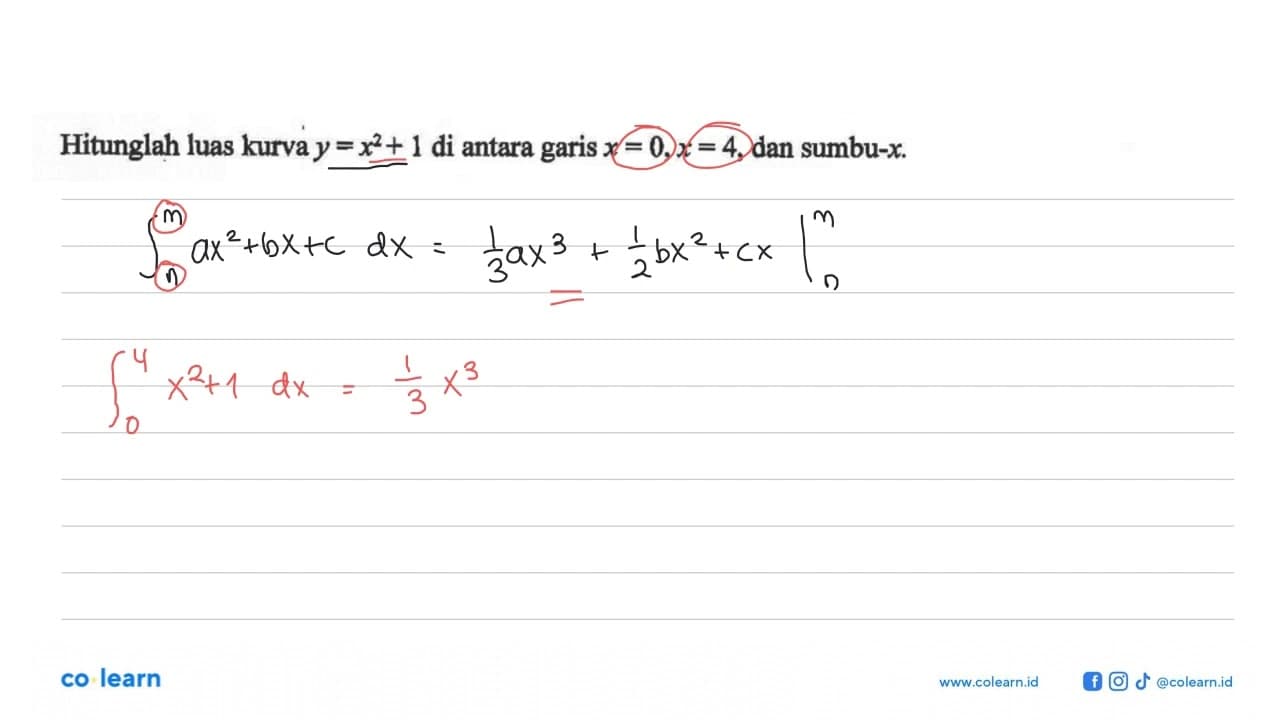 Hitunglah luas kurva y = x² + 1 di antara garis x = 0, x = 4, dan sumbu-x.
∫ₙᵐ ax² + bx + c dx = 1/3 ax³ + 1/2 bx² + cx |ₙᵐ
∫₀⁴ x² + 1 dx = 1/3 x³
co·learn
www.colearn.id @colearn.id